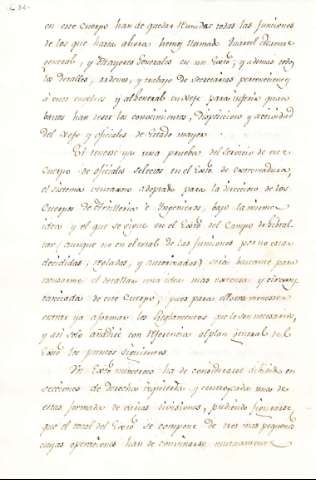 en este Cuerpo han de quedar reunidas todas las funciones
de los que hasta ahora hemos llamado Quartel Maestre
general, y Mayores Generales en un Exto; y ademas todos
los detalles, ordenes, y trabajo de Secretarias perteneciente
á unos empleos y al General en Xefe para inferir quan
bastos han de ser los conocimientos, disposicion y actividad
del Xefe y oficiales de Estado mayor.
El tenerse ya una prueba del servicio de este
Cuerpo de oficiales selectos en el Exto de Extremadura,
el sistema ventajoso adoptado para la direccion de los
Cuerpos de Artilleria é Ingenieros, bajo la misma
idea y el que se sigue en el Exto del Campo de Gibral
tar (aunque no en el total de las funciones por no estar
decididas, regladas, y autorizadas) sería bastante para
escusarme el detallar una idea mas extensa y circuns
tanciada de este Cuerpo; pues para ello es necesario
entrar ya a formar los Reglamentos que le son necesarios,
y asi solo añadiré con referencia al plan general del
Exto los puntos siguientes
Un Exto numeroso ha de considerarse dividido en
secciones de derecha izquierda y centro, cada una de
estas formada de varias divisiones, pudiendo figurarse
que el total del Exto se compone de tres mas pequeños
cuyas operaciones han de combinarse mutuamente